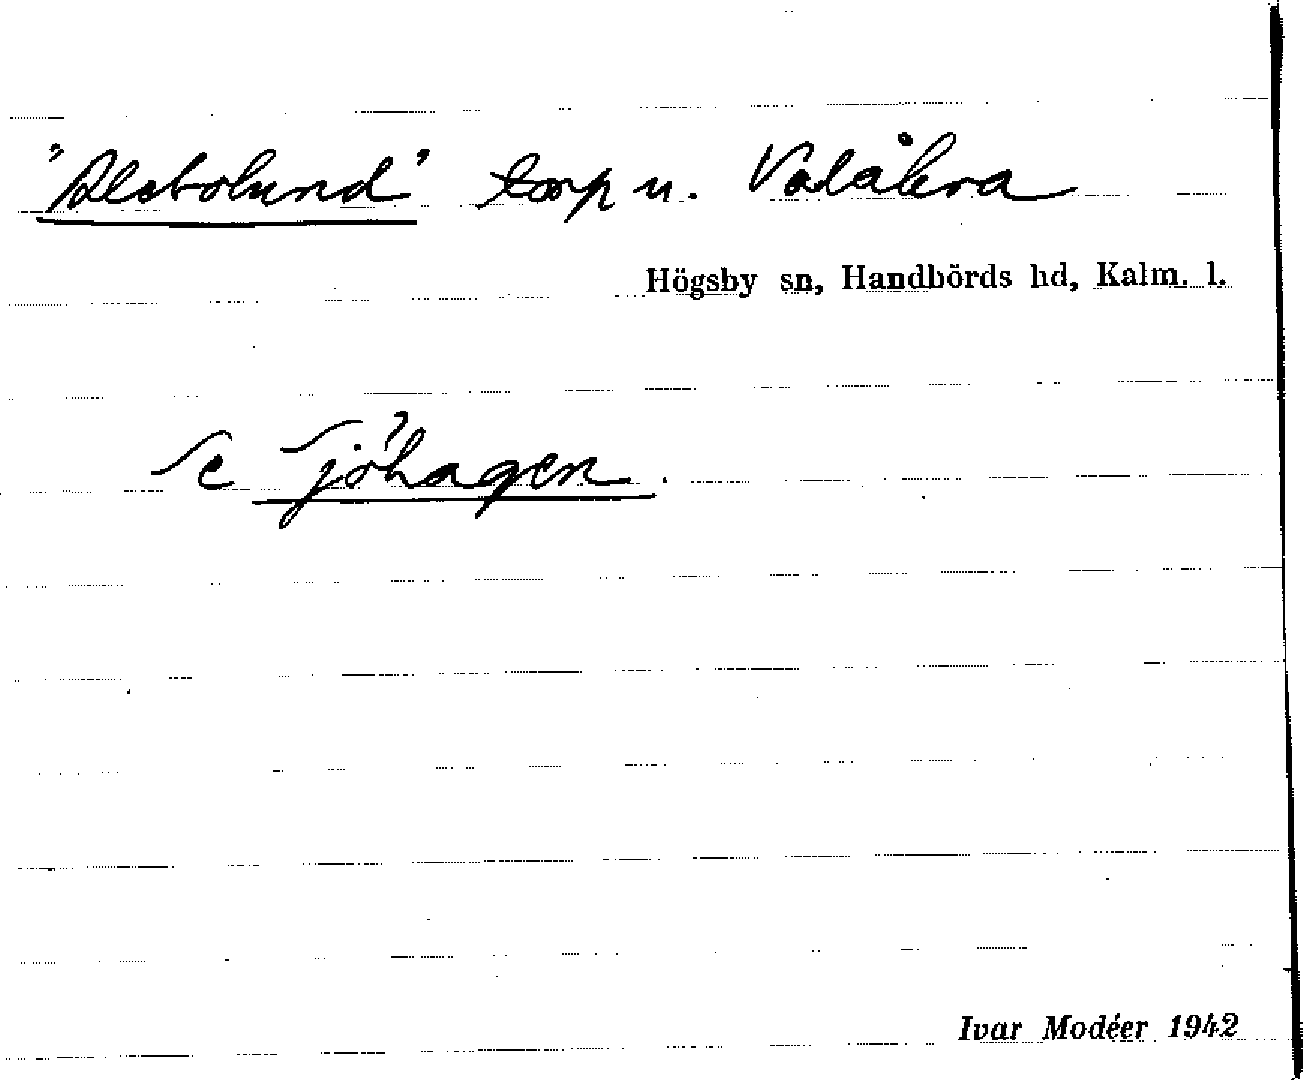 "Alebolund" torp u. Valåkra
Högsby sn, Handbörds hd, Kalm. l.
Se Sjöhagen.
Ivar Modéer 1942